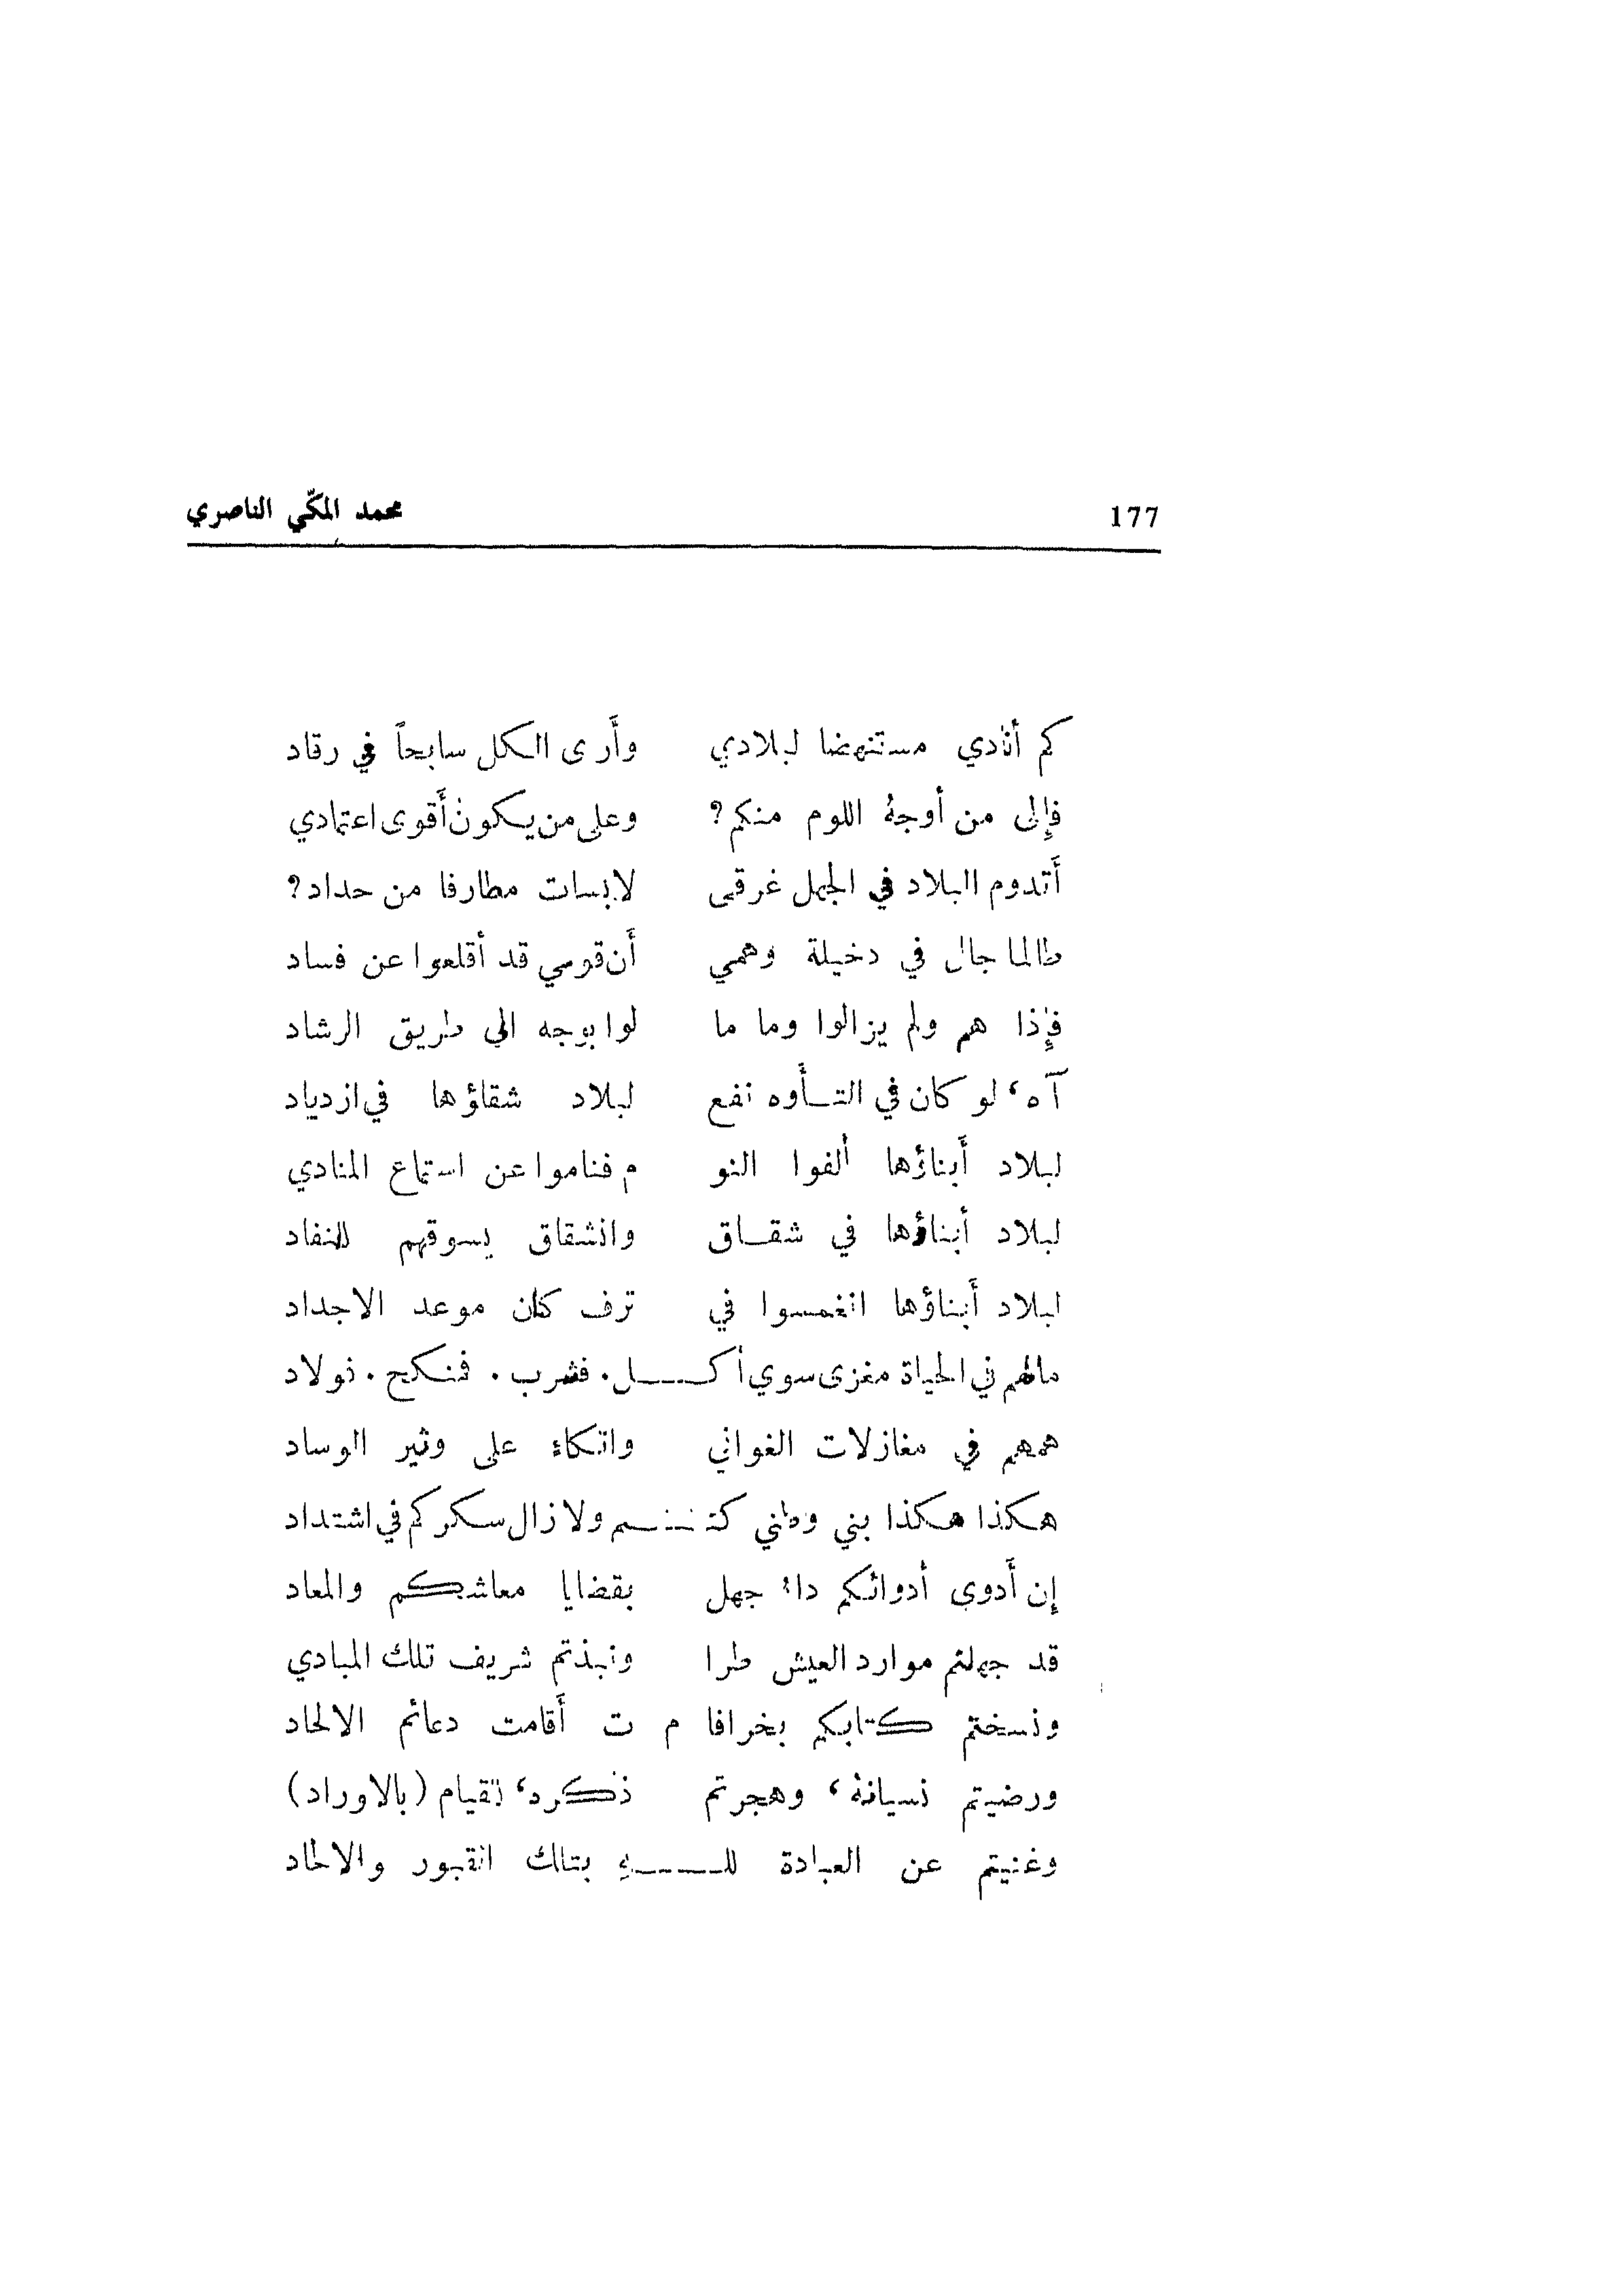 177 محمد المكّي الناصري
كم أنادي مستنهضا لبلادي وأَرى الكل سابحاً في رقاد
فإلى من أوجهُ اللوم منكم؟ وعلى من يكون أَقوى اعتمادي
أَتدوم البلاد في الجهل غرقى لابسات مطارفا من حداد؟
طالما جال في دخيلة وهمي أَن قومي قد أقلعوا عن فساد
فإذا هم ولم يزالوا وما ما لوا بوجه الى طريق الرشاد
آه، لو كان في التـأَوه نفع لبلاد شقاؤها في ازدياد
لبلاد أَبناؤها ألفوا النو م فناموا عن استماع المنادي
لبلاد أبناؤها في شقـاق وانشقاق يسوقهم للنفاد
لبلاد أَبناؤها انغمسوا في ترف كان موعد الاجداد
مالهم في الحياة مغزى سوي أكـــل. فشرب. فنكح. فولاد
همهم في مغازلات الغواني واتكاء على وثير الوساد
هكذا هكذا بني وطني كنتـم ولا زال سكركم في اشتداد
إن أَدوى أدوائكم داء جهل بقضايا معاشكم والمعاد
قد جهلتم موارد العيش طرا ونبذتم شريف تلك المبادي
ونسختم كتابكم بخرافا م ت أَقامت دعائم الالحاد
ورضيتم نسيانهُ، وهجرتم ذكره، لقيام (بالاوراد)
وغنيتم عن العبادة للـــهِ بتلك القبور والالحاد